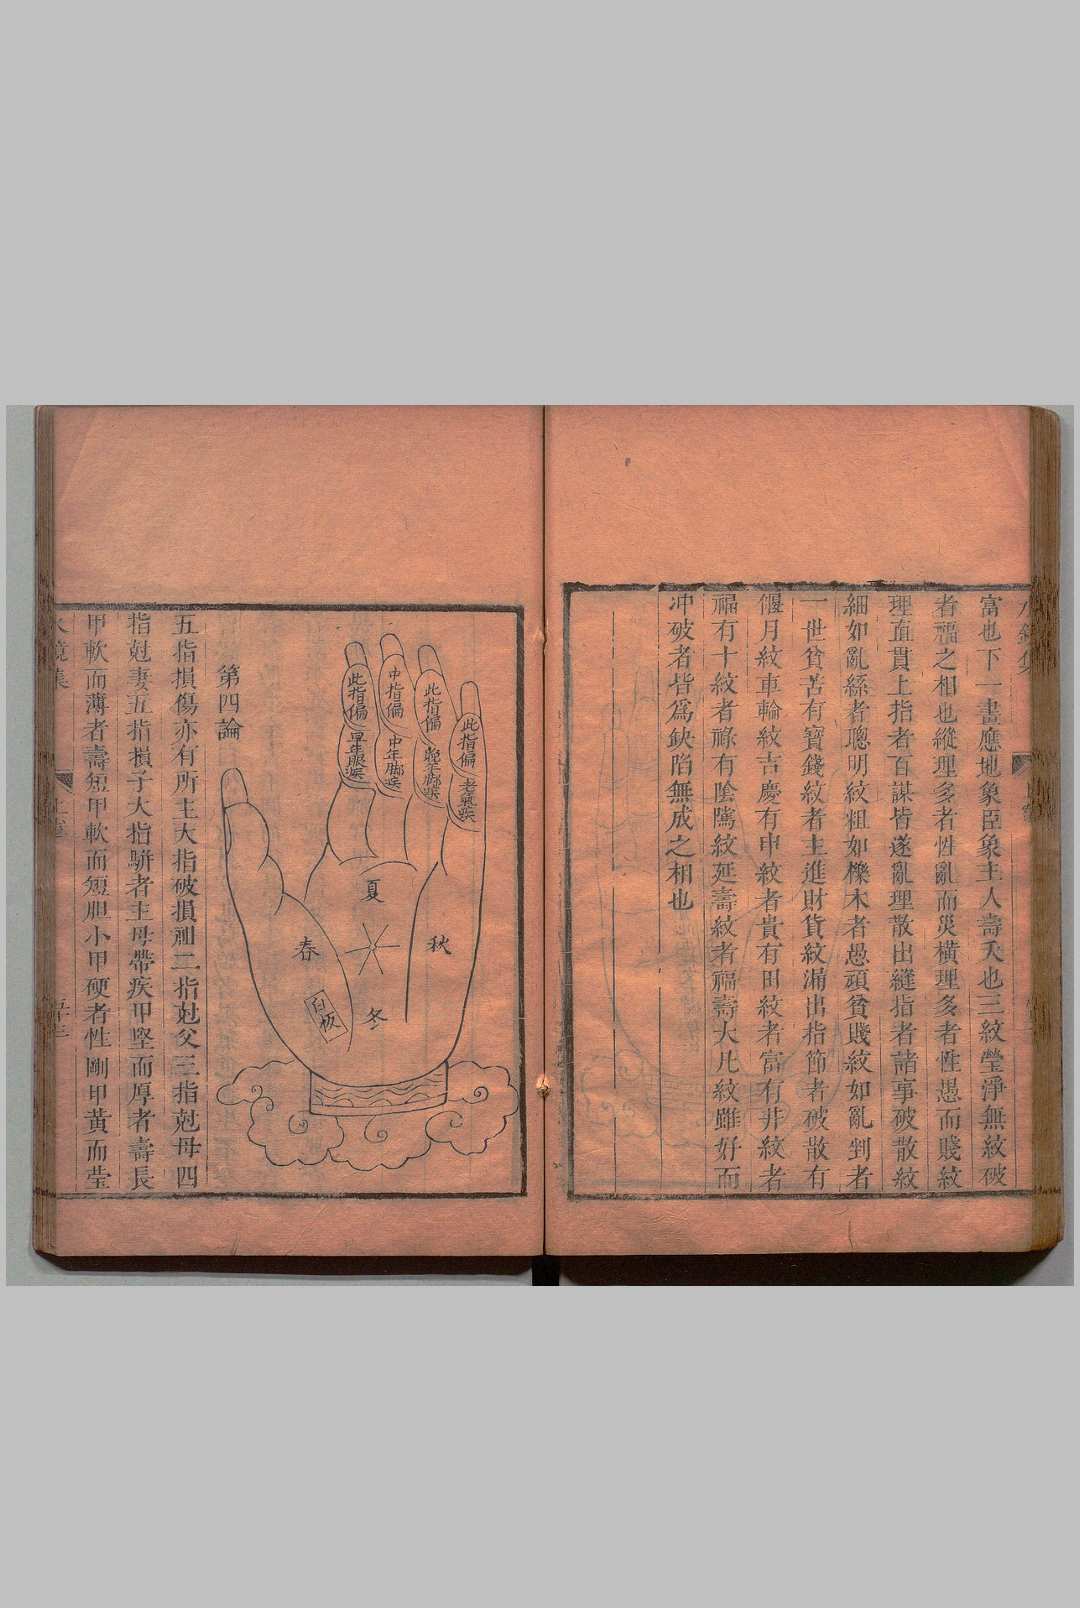 富也下一畫應地象臣象主人壽夭也三紋瑩淨無紋破
者福之相也縱理多者性亂而災橫理多者性愚而賤紋
理直貫上指者百謀皆遂亂理散出縫指者諸事破散紋
細如亂絲者聰明紋粗如櫟木者愚頑貧賤紋如亂剉者
一世貧苦有寶錢紋者主進財貨紋漏出指節者破散有
偃月紋車輪紋吉慶有申紋者貴有田紋者富有井紋者
福有十紋者祿有陰騭紋延壽紋者福壽大凡紋雖好而
冲破者皆為缺陷無成之相也
此指偏 老氣疾
此指偏 晚年腳疾
中指偏 中年腳疾
此指偏 早年眼淚
夏
秋
春
冬
白板
第四論
五指損傷亦有所主大指破損剋二指尅父三指尅母四
指尅妻五指損子大指駢者主母帶疾甲堅而厚者壽長
甲軟而薄者壽短甲軟而短胆小甲硬者性剛甲黃而瑩
水鏡集